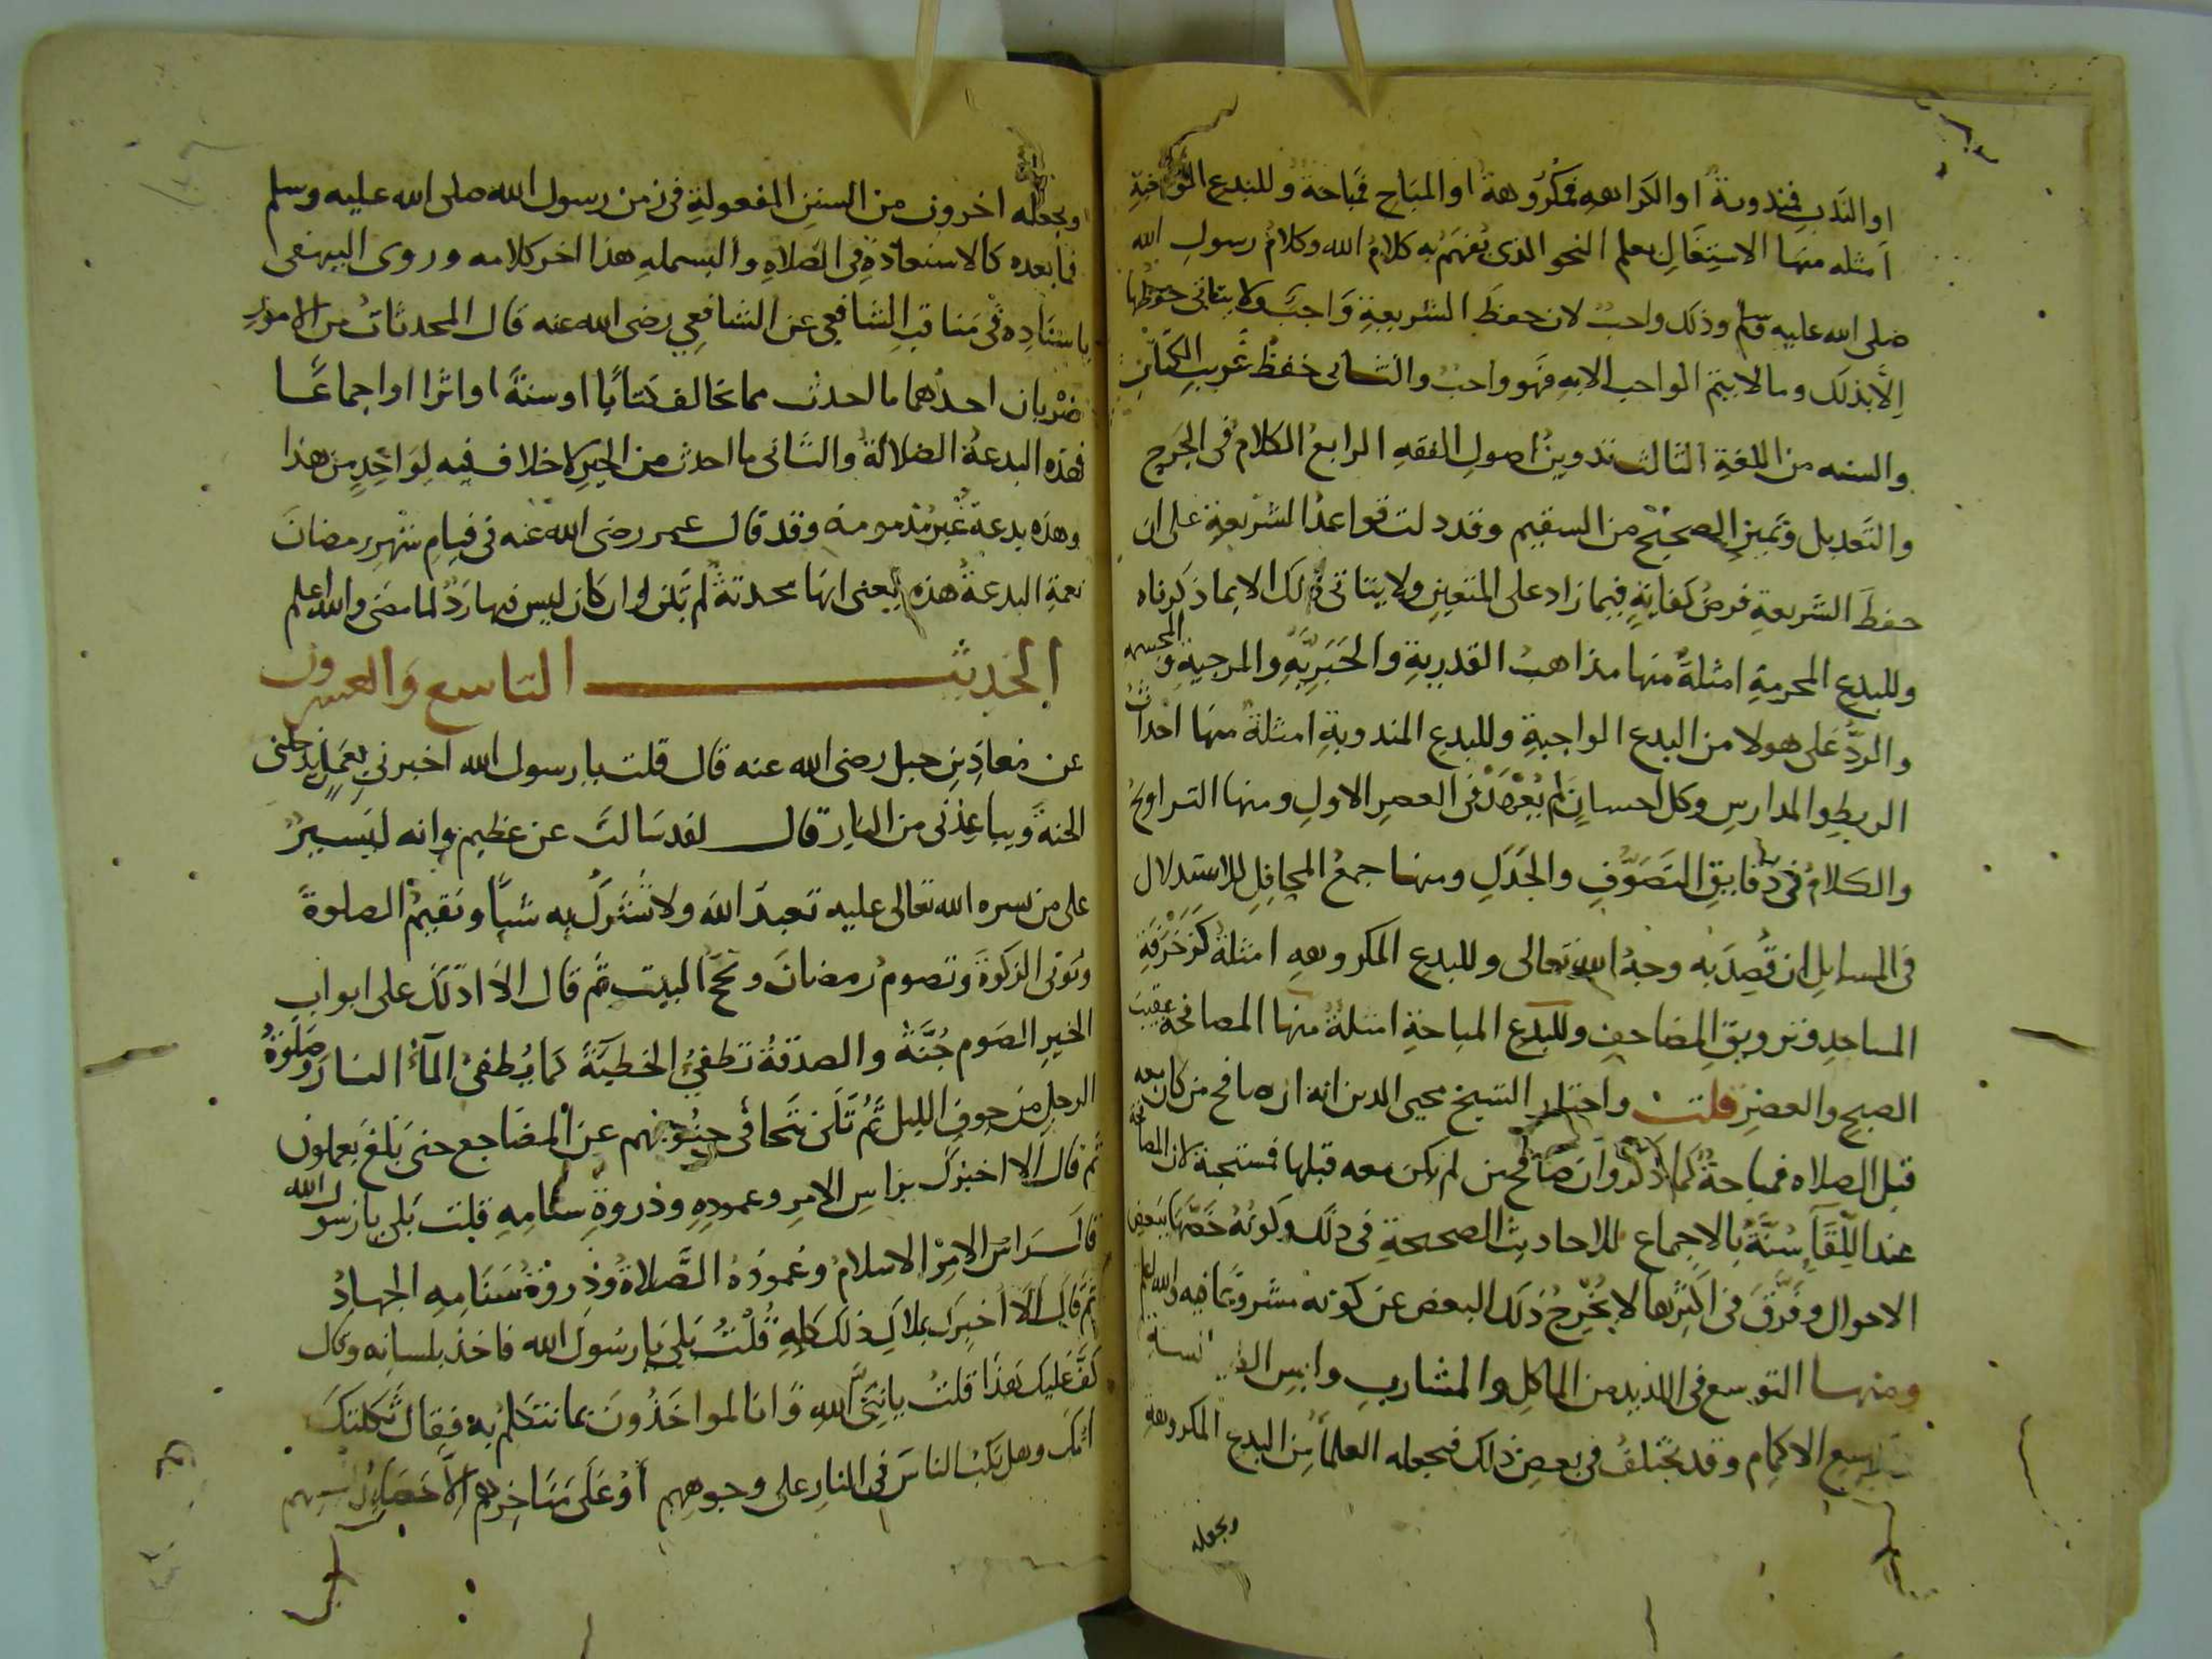 او الندب فمندوبة او الكراهه فمكروهة او المباح فمباحة وللبدع الواجبة
امثله منها الاشتغال بعلم النحو الذي يفهم به كلام الله وكلام رسول الله
صلى الله عليه وسلم وذلك واجب لان حفظ الشريعة واجب ولا يتاتى حفظها
الا بذلك وما لا يتم الواجب الا به فهو واجب والثاني حفظ غريب الكتاب
والسنه من اللغة الثالث تدوين اصول الفقه الرابع الكلام في الجرح
والتعديل وتمييز الصحيح من السقيم وقد دلت قواعد الشريعة على ان
حفظ الشريعة فرض كفاية فيما زاد على المتعين ولا يتاتى ذلك الا بما ذكرناه
وللبدع المحرمة امثلة منها مذاهب القدرية والجبرية والمرجية والمجسمه
والرد على هولا من البدع الواجبة وللبدع المندوبة امثلة منها احداث
الربط والمدارس وكل احسان لم يعهد في العصر الاول ومنها التراويح
والكلام في دقايق التصوف والجدل ومنها جمع المحافل للاستدلال
في المسايل ان قصد به وجه الله تعالى وللبدع المكروهه امثلة كزخرفة
المساجد وتزويق المصاحف وللبدع المباحة امثلة منها المصافحة عقيب
الصبح والعصر قلت واختار الشيخ محيي الدين انه ان صافح من كان معه
قبل الصلاه فمباحة كما ذكر وان صافح من لم يكن معه قبلها فمستحبة لان المصافحة
عند اللقا سنة بالاجماع للاحاديث الصحيحة في ذلك وكونه خصها ببعض
الاحوال وفرق في اكثرها لا يخرج ذلك البعض عن كونه مشروعا فيه والله اعلم
ومنها التوسع في اللذيذ من الماكل والمشارب
الاكمام وقد يختلف في بعض ذلك فيجعله العلما من البدع المكروهة
ويجعله
ويجعله اخرون من السنن المفعولة في زمن رسول الله صلى الله عليه وسلم
فما بعده كالاستعاذة في الصلاه والبسمله هذا اخر كلامه وروى البيهقي
باسناده في مناقب الشافعي عن الشافعي رضي الله عنه قال المحدثات من الامور
ضربان احدهما ما احدث مما يخالف كتابا او سنة او اثرا او اجماعا
فهذه البدعة الضلالة والثاني ما احدث من الخير لا خلاف فيه لواحد من هذا
وهذه بدعة غير مذمومة وقد قال عمر رضي الله عنه في قيام شهر رمضان
نعمة البدعة هذه يعني انها محدثة لم تكن وان كان ليس فيها رد لما مضى والله اعلم
الحديث التاسع والعشرون
عن معاذ بن جبل رضي الله عنه قال قلت يا رسول الله اخبرني بعمل يدخلني
الجنة ويباعدني من النار قال لقد سالت عن عظيم وانه ليسير
على من يسره الله تعالى عليه تعبد الله ولا تشرك به شيا وتقيم الصلوة
وتوتي الزكوة وتصوم رمضان وتحج البيت ثم قال الا ادلك على ابواب
الخير الصوم جنة والصدقة تطفئ الخطيئة كما يطفئ الماء النار وصلوة
الرجل من جوف الليل ثم تلى تتجافى جنوبهم عن المضاجع حتى بلغ يعملون
ثم قال الا اخبرك براس الامر وعموده وذروة سنامه قلت بلى يا رسول الله
قال راس الامر الاسلام وعموده الصلاة وذروة سنامه الجهاد
ثم قال الا اخبرك بملاك ذلك كله قلت بلى يا رسول الله فاخذ بلسانه وقال
كف عليك هذا قلت يا نبي الله وانا لمواخذون بما نتكلم به فقال ثكلتك
امك وهل يكب الناس في النار على وجوههم او على مناخرهم الا حصايد السنتهم